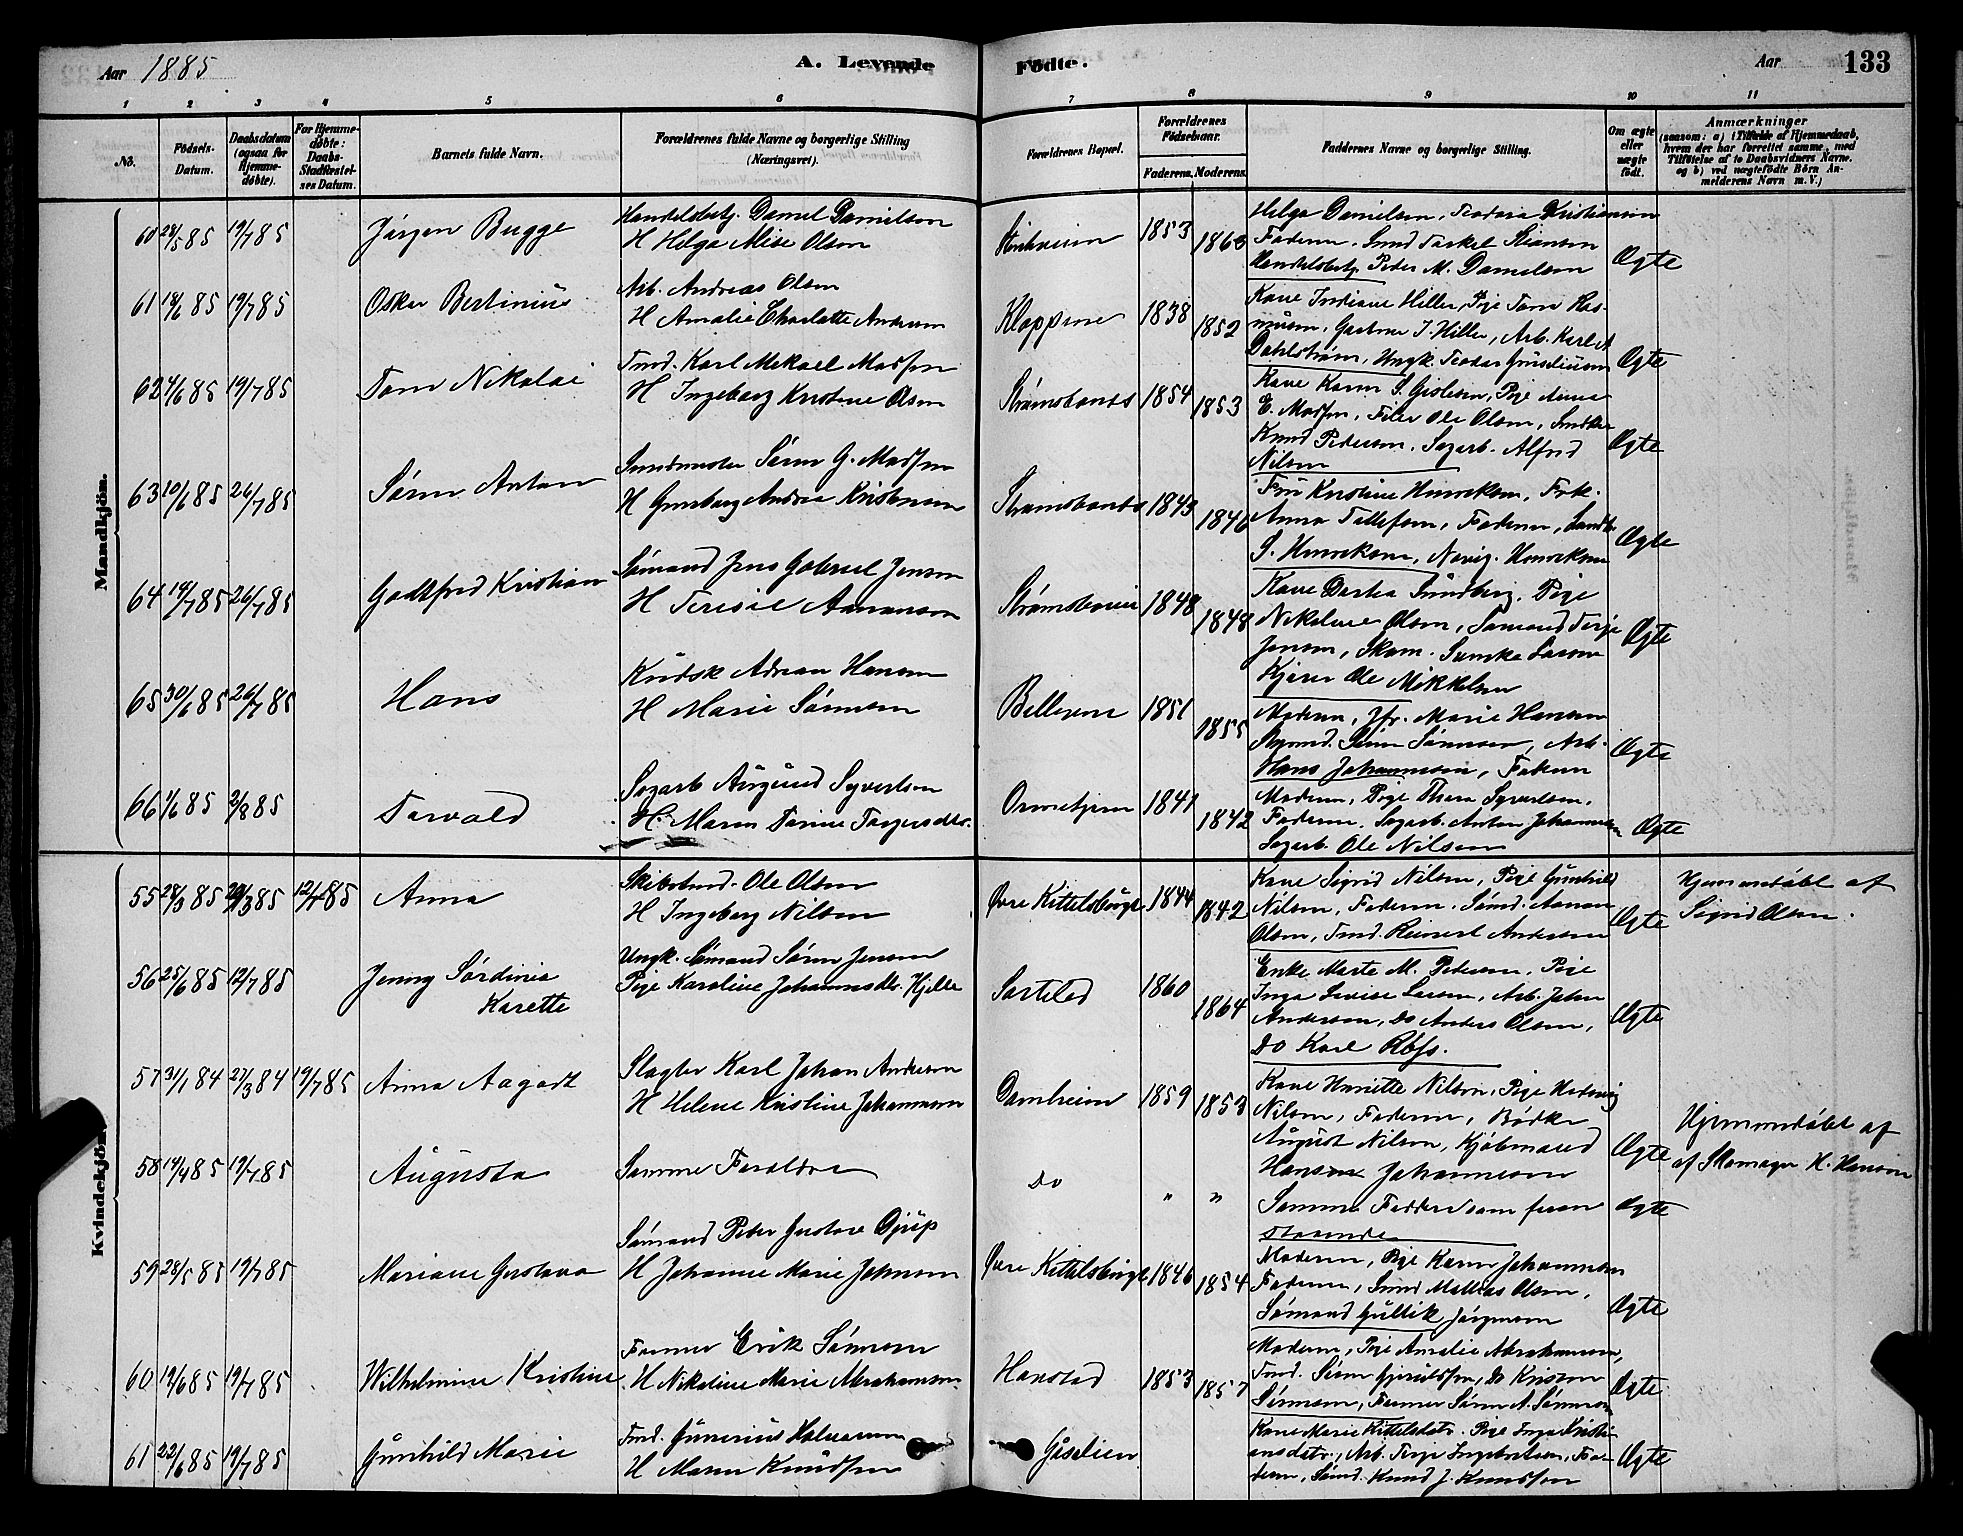 Aar 1885
A. Levende
Fødte.
Aar
133
1 2 3 4 5 6 7 8 9 10 11
No.
Fødsels-Datum.
Daabsdatum (ogsaa for Hjemme-døbte).
For Hjemme-døbte: Daabs-Stadfæstel-ses Datum.
Barnets fulde Navn.
Forældrenes fulde Navne og borgerlige Stilling (Næringsvei).
Forældrenes Bopæl.
Forældrenes Fødselsaar.
Faderens. Moderens.
Faddernes Navne og borgerlige Stilling.
Om ægte eller uægte født.
Anmærkninger
(saasom: a) i Tilfælde af Hjemmedaab, hvem der har forrettet samme, med Tilføielse af to Daabsvidners Navne. og b) ved uægtefødte Børn An-melderens Navn m. V.)
Mandkjön.
60 28/5 85 19/7 85 Jørgen Bugge
Handelsbetj. Daniel Danielsen
H Helga Elise Olsen
1853
Helga Danielsen, Teodora Kristiansen
Faderen, Smd Torkel
Handelsbetj. Peder M. Danielsen
Ægte
61 18/6 85 19/7 85 Oskar Bertinius
Arb. Andreas Olsen
H Amalie Charlotte Andersen
Kloppene 1838 1852
Kone Indiane Hiller, Pige Tom Ras-
musen, Gartner J. Hiller, Arb. Karl A
Dahlstrøm, Ungk. Teodor
Ægte
62 4/6 85 19/7 85 Tom Nikolai
Tmd. Karl Mekael Madsen
H Ingeborg Kristine Olsen
Strømsbonds 1854 1853
Kone Karen S. Gislesen, Pige Anna
E. Madsen, Ole Olsen,
Knud Pedersen, Sagarb. Alfred
Nilsen
Ægte
63 10/6 85 26/7 85 Søren Anton
Søren G. Madsen
H Gunborg Andrea Kristensen
Strømsbonds 1843 1846
Fru Kristine Henriksen, Frk.
Anna Tellefsen, Faderen,
S. Henriksen, Navig. Henriksen
Ægte
64 19/7 85 26/7 85 Godtfred Kristian
Sømand Jens Gabriel Jensen
H Teresie Aanonsen
1848 1848
Kone Dortea Sundberg, Pige
Nikoline Olsen, Sømand Terje
Jensen, Skom.
Ole Mikkelsen
Ægte
65 30/6 85 26/7 85 Hans
Kudsk Adrian Hansen
H Marie Sørensen
Bellevue 1851 1855
Moderen, Jfr. Marie Hansen
Søren Sørensen, Arb.
Hans Johannesen, Faderen
Ægte
66 1/6 85 2/8 85 Torvald
Sagarb August Syvertsen
H. Maren Torine Torjersdtr.
1841 1842
Moderen, Pige Thora Syvertsen,
Faderen, Sagarb. Anton Johannesen
Sagarb. Ole Nilsen
Ægte
Kvindekjön.
55 28/3 85 29/3 85 12/7 85 Anna
Skibstmd. Ole Olsen
H Ingeborg Nilsen
Øvre Kittelsbugt 1844 1842
Kone Sigrid Nilsen, Pige Gunhild
Nilsen, Faderen, Sømd. Aanon
Olsen, Tmd. Reinert Andersen
Ægte
Hjemmedøbt af
Sigrid Olsen.
56 25/6 85 12/7 85 Jenny Sørdinia
Karette
Ungk. Sømand Søren Jensen
Pige Karoline Johannesdtr. Kjelle
1860 1864
Enke Marte M. Pedersen, Pige
Inga Lovise Larsen, Arb. Johan
Andersen, Do Anders Olsen,
Do Karl
Ægte
57 31/1 84 27/3 84 19/7 85 Anna Aagodt
Slagter Karl Johan Andersen
H Helene Kristine Johannesen
Damheien 1859 1853
Kone Henriette Nilsen, Pige Hedevig
Nilsen, Faderen, Bødker
August Nilsen, Kjøbmand
Hansen Johannesen
Ægte
Hjemmedøbt af
af Skomager H. Hansen
58 14/4 85 19/7 85 Augusta
Samme Forældre
Do " "
Samme Faddere som foran
staaende
Ægte
59 28/5 85 19/7 85 Mariane Gustava
Sømand Peder Gustav Djup
H Johanne Marie Johnsen
Øvre Kittelsbugt 1846 1854
Moderen, Pige Karen Johannesen
Faderen, Smd Mathias Olsen,
Sømand Gullik Jørgensen
Ægte
60 14/6 85 19/7 85 Wilhelmine Kristine
Former Erik Sørensen
H Nikoline Marie Abrahamsen
Havstad 1853 1857
Moderen, Pige Amalie Abrahamsen,
Tmd. Søren Gjerulfsen, Do Kristen
Sørensen, Former Søren A. Sørensen
Ægte
61 22/6 85 19/7 85 Gunhild Marie
Tmd. Gunerius Halvorsen
H Maren Knudsen
Gåselien
Kone Marie Kittelsdtr. Pige Inga Kristi-
ansdtr., Arb. Terje Ingebretsen, Fa-
deren, Sømd. Knud J. Knudsen
Ægte